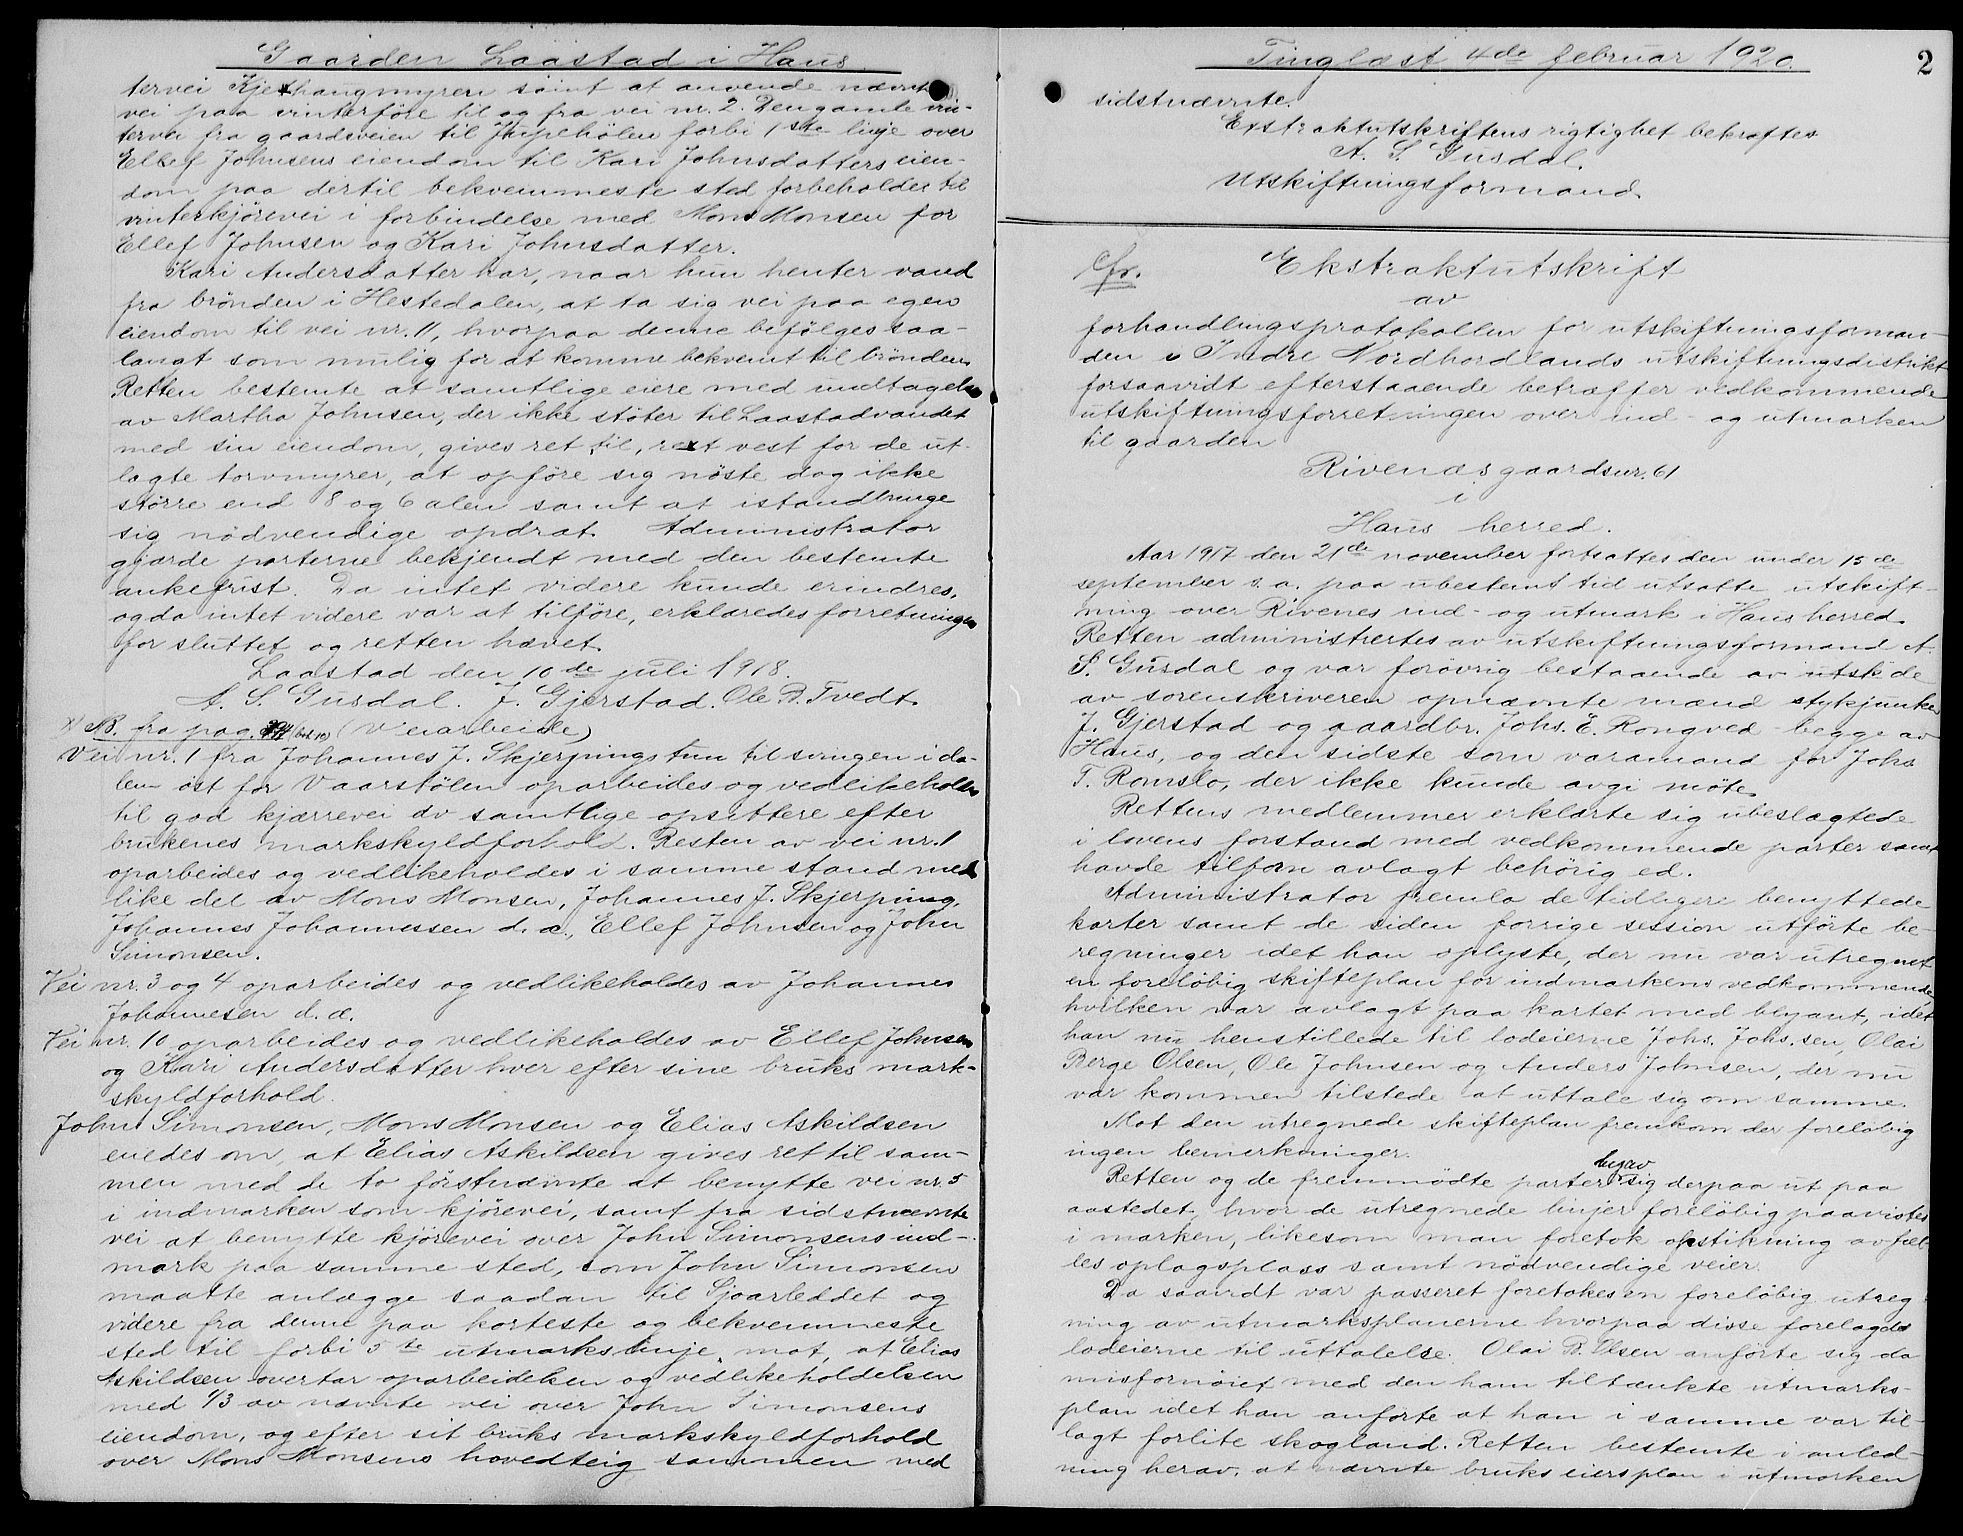 Gaarden Laastad i Haus
tervei Kjethangmyren samt at anvende nævnte
vei paa vinterföre til og fra vei nr. 2. Den gamle vin-
tervei fra gaardsveien til Jupehölen forbi 1ste linje over
Ellef Johnsens eiendom til Kari Johnsdatters eien-
dom paa dertil bekvemmeste sted forbeholdes til
vinterkjörevei i forbindelse med Mons Monsen for
Ellef Johnsen og Kari Johnsdatter.
Kari Andersdatter har, naar hun henter vand
fra brönden i Hestedalen, at ta sig vei paa egen
eiendom til vei nr. 11, hvorpaa denne befölges saa-
langt som mulig for at komme bekvemt til brönden.
Retten bestemte at samtlige eiere med undtagelse
av Martha Johnsen, der ikke stöter til Laastadvandet
med sin eiendom, gives ret til, ret vest for de ut-
lagte torvmyrer, at opföre sig nöste dog ikke
större end 8 og 6 alen samt at istandbringe
sig nödvendige opdrat. Administrator
gjorde parterne bekjendt med den bestemte
ankefrist. Da intet videre kunde erindres,
og da intet videre var at tilföre, erklæredes forretningen
for sluttet og retten hævet.
Laastad den 10de juli 1918.
A. S. Gusdal. J. Gjerstad. Ole B. Tvedt.
x) NB. fra pag. (Veiarbeide)
Vei nr. 1 fra Johannes J. Skjerpings tun til svingen i da-
len öst for Vaarstölen oparbeides og vedlikeholdes
til god kjærrevei av samtlige opsittere efter
brukenes markskyldforhold. Resten av vei nr. 1
oparbeides og vedlikeholdes i samme stand med
like del av Mons Monsen, Johannes J. Skjerping,
Johannes Johannessen d. æ., Ellef Johnsen og John
Simonsen.
Vei nr. 3 og 4 oparbeides og vedlikeholdes av Johannes
Johannesen d. æ.
Vei nr. 10 oparbeides og vedlikeholdes av Ellef Johnsen
og Kari Andersdatter hver efter sine bruks mark-
skyldforhold.
John Simonsen, Mons Monsen og Elias Askildsen
enedes om, at Elias Askildsen gives ret til sam-
men med de to förstnævnte at benytte vei nr. 5
i indmarken som kjörevei, samt fra sidstnævnte
vei at benytte kjörevei over John Simonsens ind-
mark paa samme sted, som John Simonsen
maatte anlægge saadan til Sjoarleddet og
videre fra denne paa korteste og bekvemmeste
sted til forbi 5te utmarkslinje, mot, at Elias
Askildsen overtar oparbeidelsen og vedlikeholdelsen
med 1/3 av nævnte vei over John Simonsens
eiendom, og efter sit bruks markskyldforhold
over Mons Monsens hovedteig sammen med
Tinglæst 4de februar 1920.
2
sidstnævnte.
Exstraktutskriftens rigtighet bekræftes
A. S. Gusdal.
Utskiftningsformand.
Cfr.
Ekstraktutskrift
av
forhandlingsprotokollen for utskiftningsforman-
den i Indre Nordhordlands utskiftningsdistrikt
forsaavidt efterstaaende betræffer vedkommende
utskiftningsforretningen over ind- og utmarken
til gaarden
Rivenæs gaardsnr. 61
i
Haus herred.
Aar 1917 den 21de november fortsattes den under 15de
september s. a. paa ubestemt tid utsatte utskift-
ning over Rivenes ind- og utmark i Haus herred.
Retten administrertes av utskiftningsformand A.
S. Gusdal og var forövrig bestaaende av utsk de
av sorenskriveren opnævnte mænd stykjunker
J. Gjerstad og gaardbr. Johs. E. Rongved begge av
Haus, og den sidste som varamand for Johs
T. Romslo, der ikke kunde avgi möte.
Rettens medlemmer erklærte sig ubeslægtede
i lovens forstand med vedkommende parter samt
havde tilforn avlagt behörig ed.
Administrator fremla de tidligere benyttede
karter samt de siden forrige session utförte be-
regninger idet han oplyste, der nu var utregnet
en forelöbig skifteplan for indmarkens vedkommende,
hvilken var avlagt paa kartet med blyant, idet
han nu henstillede til lodeierne Johs. Johs.sen, Olai
Berge Olsen, Ole Johnsen og Anders Johnsen, der nu
var kommen tilstede at uttale sig om samme.
Mot den utregnede skifteplan fremkom der forelöbig
ingen bemerkninger.
Retten og de fremmödte parter begav sig derpaa ut paa
aastedet, hvor de utregnede linjer forelöbig paavistes
i marken, likesom man foretok opstikning av fæl-
les oplagsplass samt nödvendige veier.
Da saavidt var passeret foretokes en forelöbig utreg-
ning av utmarksplanerne hvorpaa disse forelagdes
lodeierne til uttalelse. Olai B. Olsen anförte sig da
misfornöiet med den ham tiltænkte utmarks-
plan idet han anförte at han i samme var til-
lagt forlite skogland. Retten bestemte i anled-
ning herav, at nævnte bruks eiersplan i utmarken